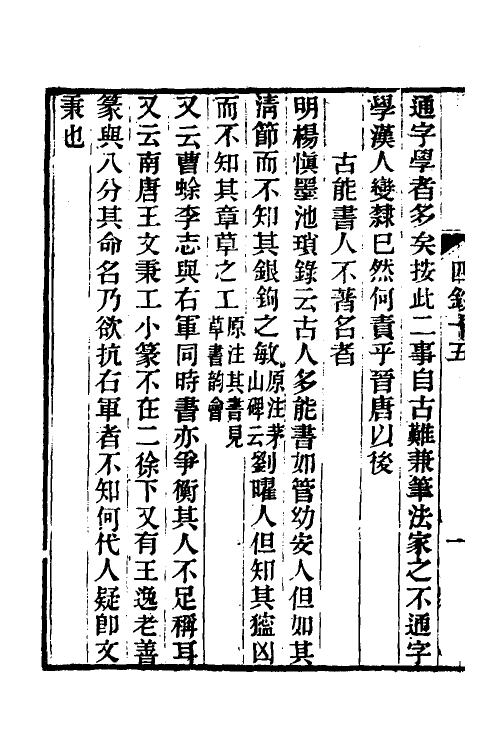 通字學者多矣按此二事自古難兼筆法家之不通字
學漢人變隸已然何責乎晉唐以後
古能書人不著名者
明楊慎墨池瑣錄云古人多能書如管幼安人但如其
清節而不知其銀鉤之敏原注茅山碑云劉曜人但知其獷凶
而不知其章草之工原注其書見草書韵會
又云曹蜍李志與右軍同時書亦爭衡其人不足稱耳
又云南唐王文秉工小篆不在二徐下又有王逸老善
篆與八分其命名乃欲抗右軍者不知何代人疑卽文
秉也
四錄十五
一